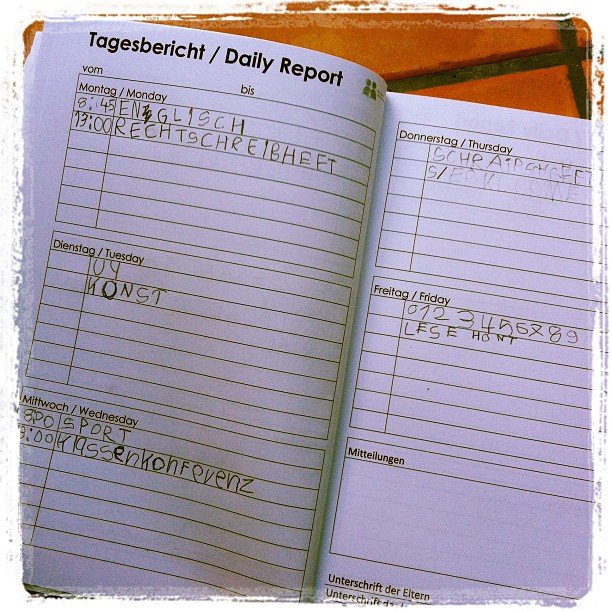 Tagesbericht / Daily Report
vom bis
Montag / Monday
8:45 ENGLISCH
13:00 RECHTSCHREIBHEFT
Dienstag / Tuesday
UY
KONST
Mittwoch / Wednesday
SPORT
Klassenkonferenz
Donnerstag / Thursday
Freitag / Friday
0123456789
LESE HONT
Mitteilungen
Unterschrift der Eltern